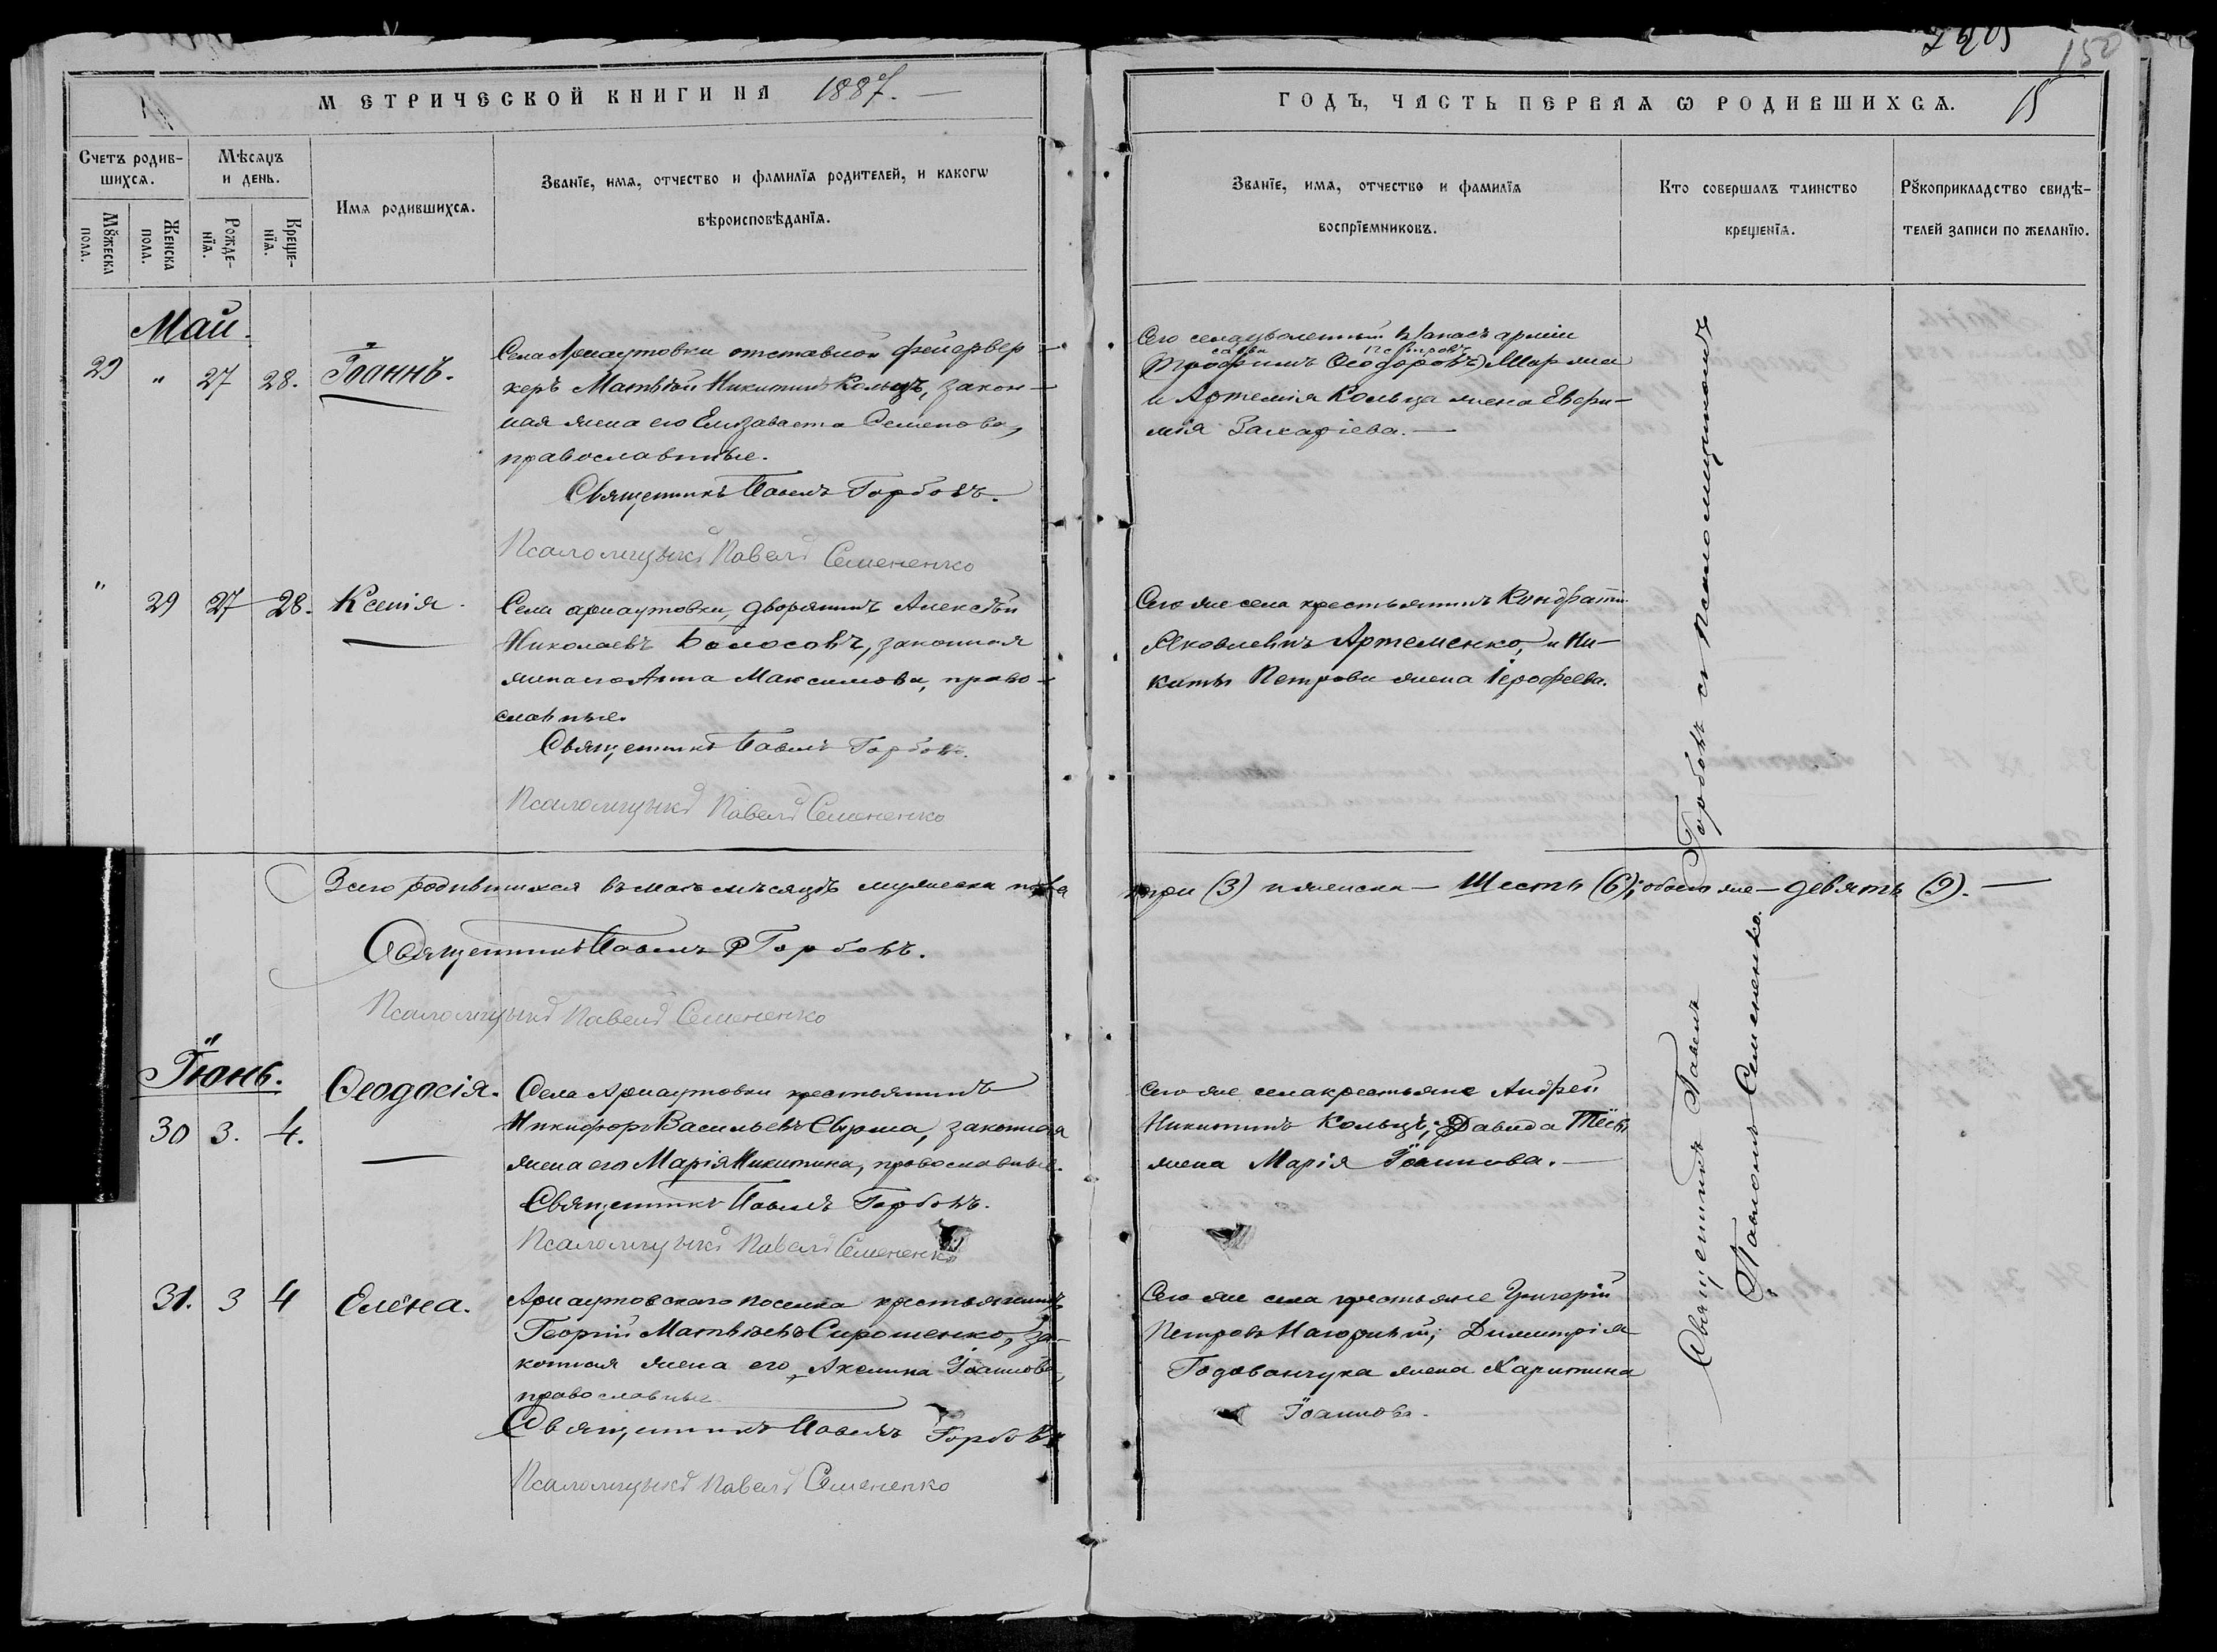 МЕТРИЧЕСКОЙ КНИГИ НА 1887. —
Счетъ родив-
шихся.
Мѣсяцъ
и день.
Мꙋжеска
пола.
Женска
пола.
Рожде-
нїя.
Креще-
нїя.
Имя родившихся.
Званїе, имя, отчество и фамилїя родителей, и какогѡ
вѣроисповѣданїя.
Май.
29 " 27 28. Іоаннъ.
Села Арнаутовки отставной фейервер
керъ Матѳѣй Никитинъ Кольцъ, закон-
ная жена его Елизавета Семенова,
православные.
Священникъ Павелъ Горбовъ.
Псаломщикъ Павелъ Семененко
" 29 27 28. Ксенія.
Села арнаутовки, дворянинъ Алексѣй
Николаевъ Волосовъ, законная
жена его Анна Максимова, право-
славные.
Священникъ Павелъ Горбовъ.
Псаломщикъ Павелъ Семененко
Всего родившихся въ маѣ мѣсяцѣ мужеска пола
Священникъ Павелъ Горбовъ.
Псаломщикъ Павелъ Семененко
Іюнь.
30 3. 4. Ѳеодосія.
Села Арнаутовки крестьянинъ
Никифоръ Васильевъ Сырма, законная
жена его Марія Никитина, православные.
Священникъ Павелъ Горбовъ.
Псаломщикъ Павелъ Семененко
31. 3 4 Елена.
Арнаутовскаго поселка крестьянинъ
Георгій Матвѣевъ Сирошенко, за-
конная жена его Акелина Іоаннова,
православные
Священникъ Павелъ Горбовъ
Псаломщикъ Павелъ Семененко
150
ГОДЪ, ЧАСТЬ ПЕРВАЯ Ѡ РОДИВШИХСЯ. 15
Званїе, имя, отчество и фамилїя
воспрїемниковъ.
Кто совершалъ таинство
крещенїя.
Рꙋкоприкладство свидѣ-
телей записи по желанїю.
Сего села уволенный въ запасъ арміи
Трофимъ Ѳеодоровъ
и Артемія Кольца жена Евфи-
мія Захаріева. —
Сего же села крестьянинъ Кондратій
Яковлевичъ Артеменко, и Ни-
киты Петрова жена Іерофеева.
три (3) и женска — Шесть (6); обоего же — девять (9). —
Сего же села крестьяне Андрей
Никитинъ Кольцъ, и Давида
жена Марія Іоаннова. —
Сего же села крестьяне Григорій
Петровъ Нагорный; Димитрія
Годованчука жена Харитина
Іоаннова.
Священникъ Павелъ Горбовъ съ Псаломщикомъ
Павломъ Семененко.